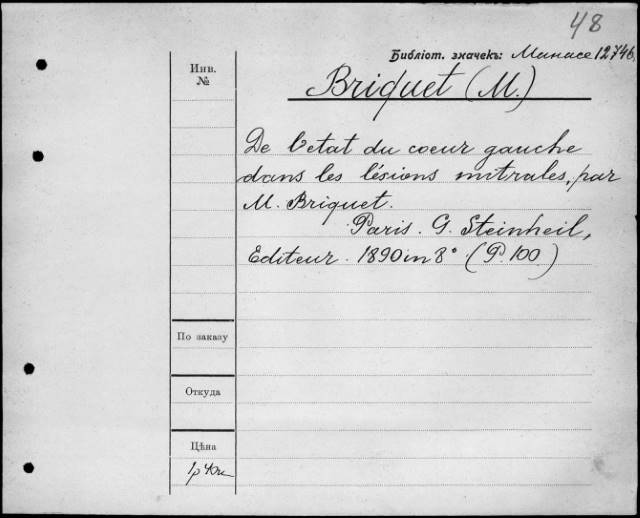 48
Библіот. значекъ: Манасе 12746.
Инв.
№
Briquet (M.)
De l'etat du coeur gauche
dans les lésions mitrales, par
M. Briquet.
Paris. G. Steinheil,
Editeur. 1890 in 8° (P. 100)
По заказу
Откуда
Цѣна
1р 40к